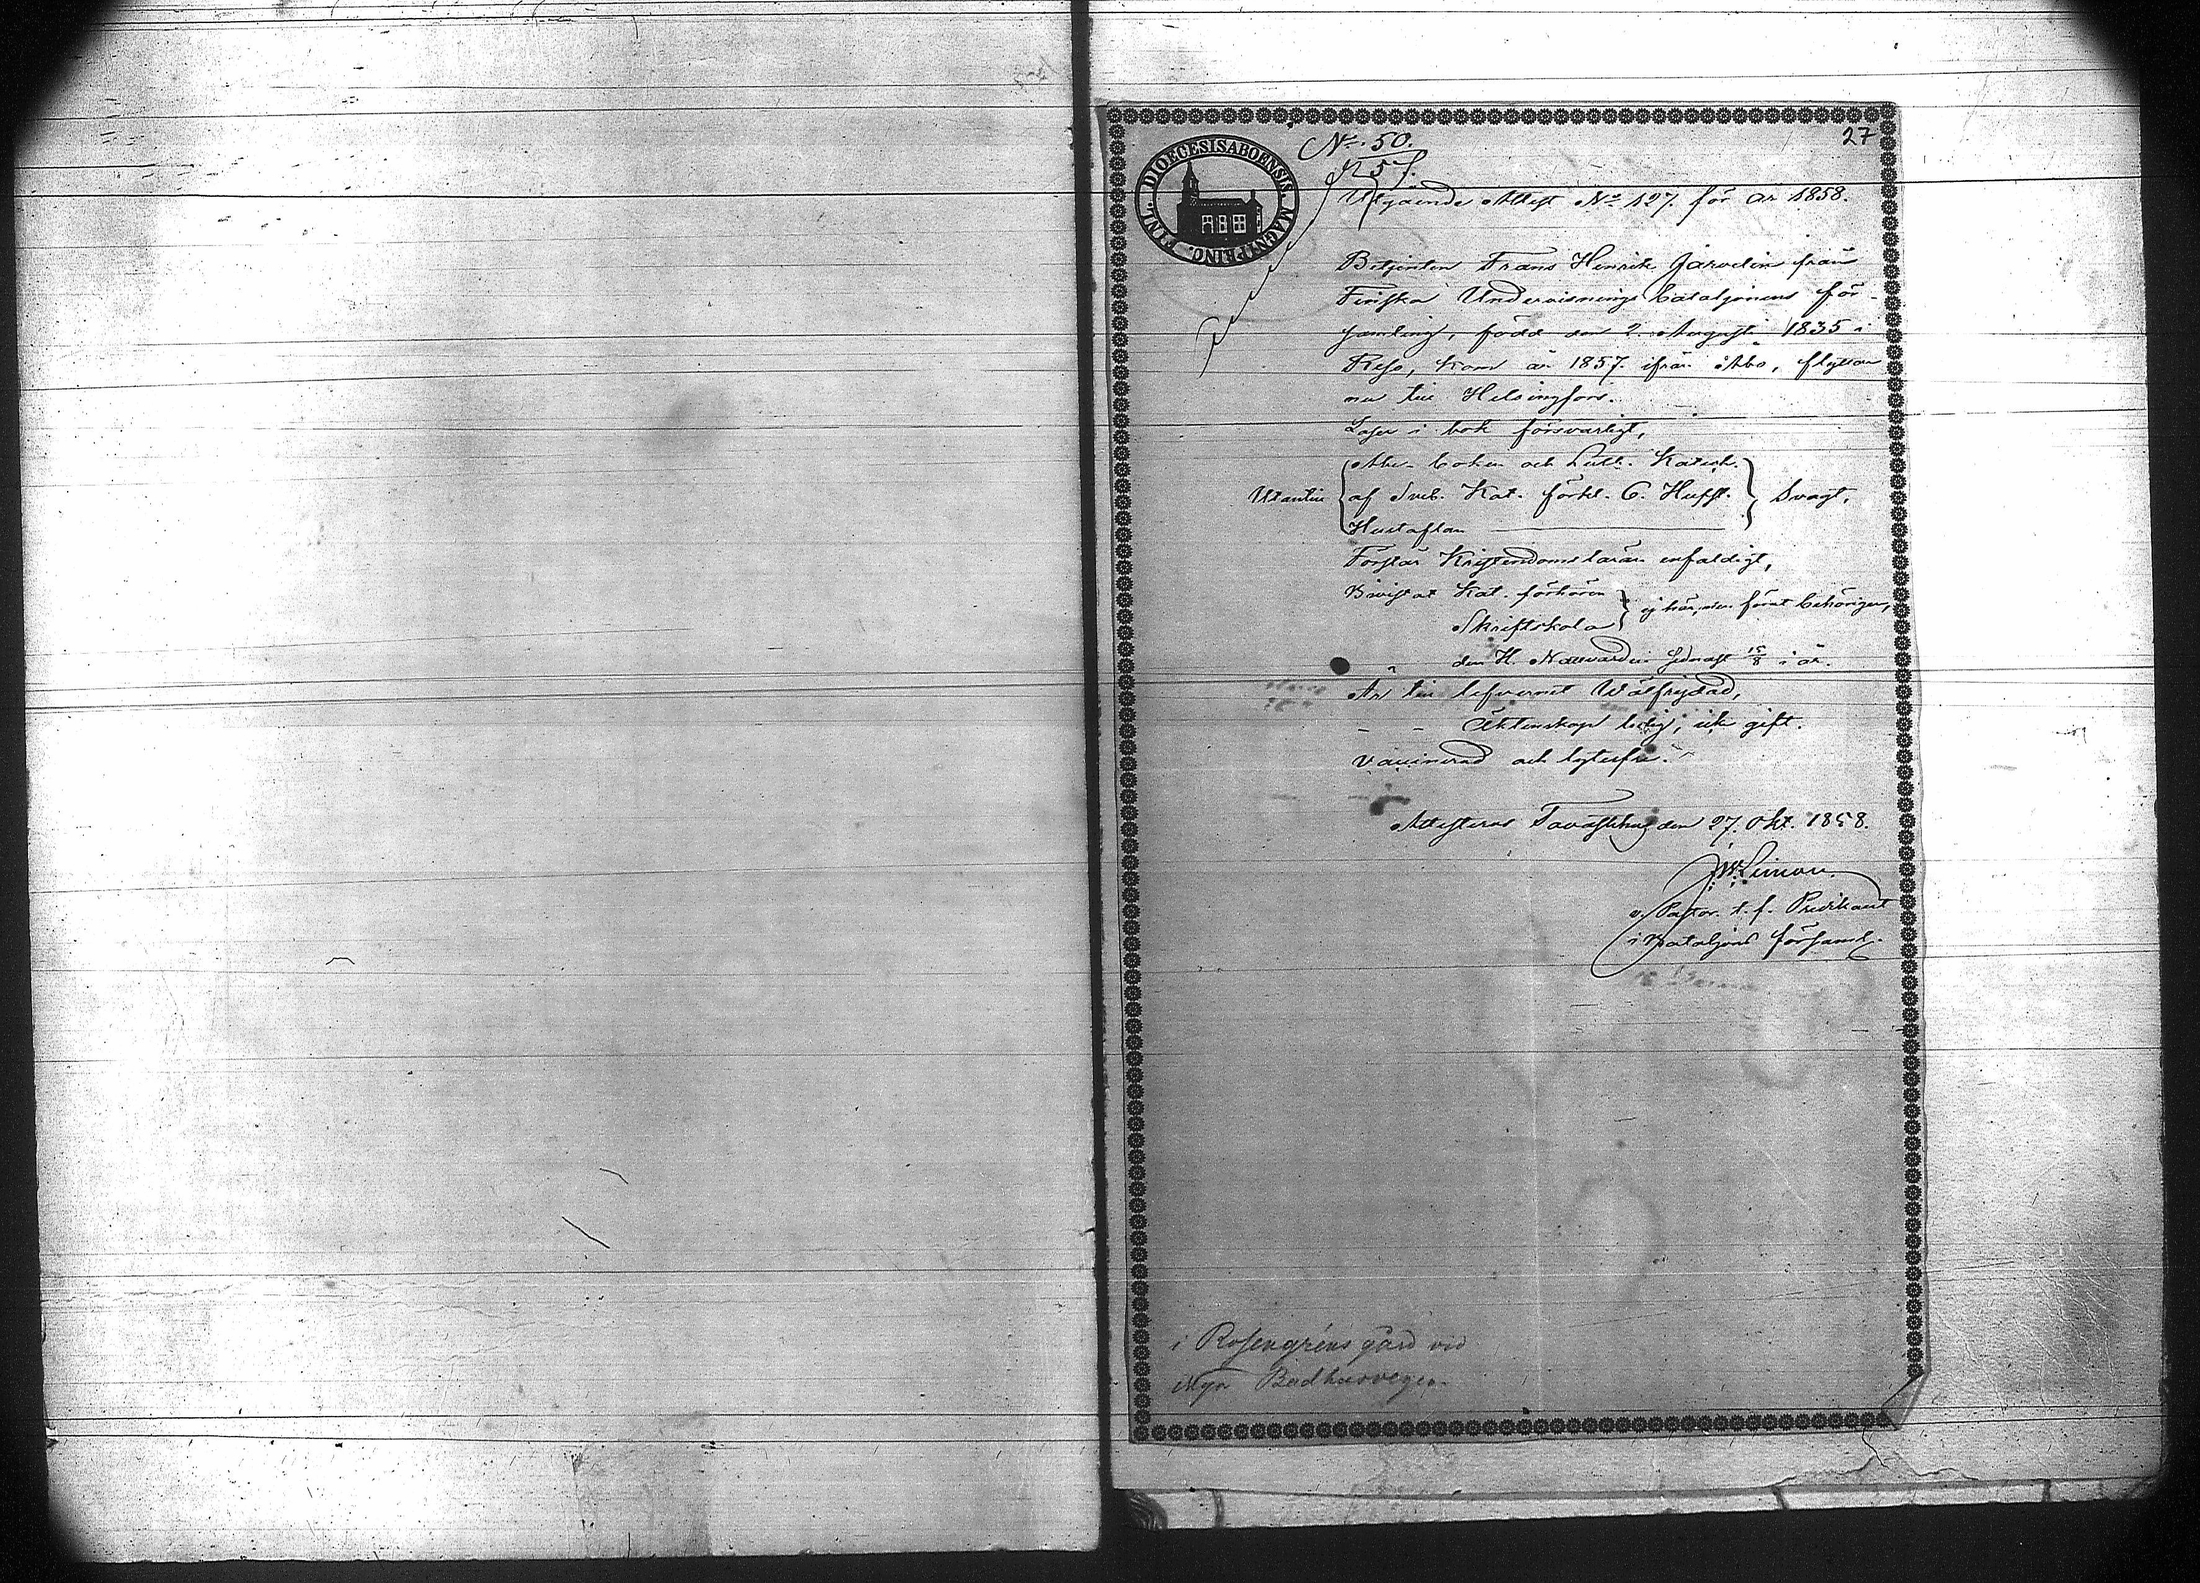 27
DIOECESIS ABOENSIS. MAGNI PRINC. FINL.
No. 50.
Utgående Attest No 127. för år 1858.
Betjenten Frans Henrik Jarvelin från
Finska Undervisnings bataljonens för-
samling, född den 2. Augusti 1835 i
Reso, kom år 1857. ifrån Åbo, flyttar
nu till Helsingfors.
Läser i bok försvarligt,
Abc-boken och Luth. Katech.
Utantill af Sveb. Kat. förkl. 6. Hufst. Svagt,
Hustaflan
Förstår Kristendomsläran enfaldigt,
Bivistat Kat. förhören
Skriftskola ej här, men förut behörigen,
" den H. Nattvarden sednast 15/8 i år.
Är till lefvernet Wälfrejdad,
- - Äktenskap ledig, ick gift.
Vaccinerad och lytesfri.
Attesteras Tavastehus den 27. Okt. 1858.
v. Pastor. t. f. Predikant
i Bataljons församl.
i Rosengréns gård vid
Badhusvägen.